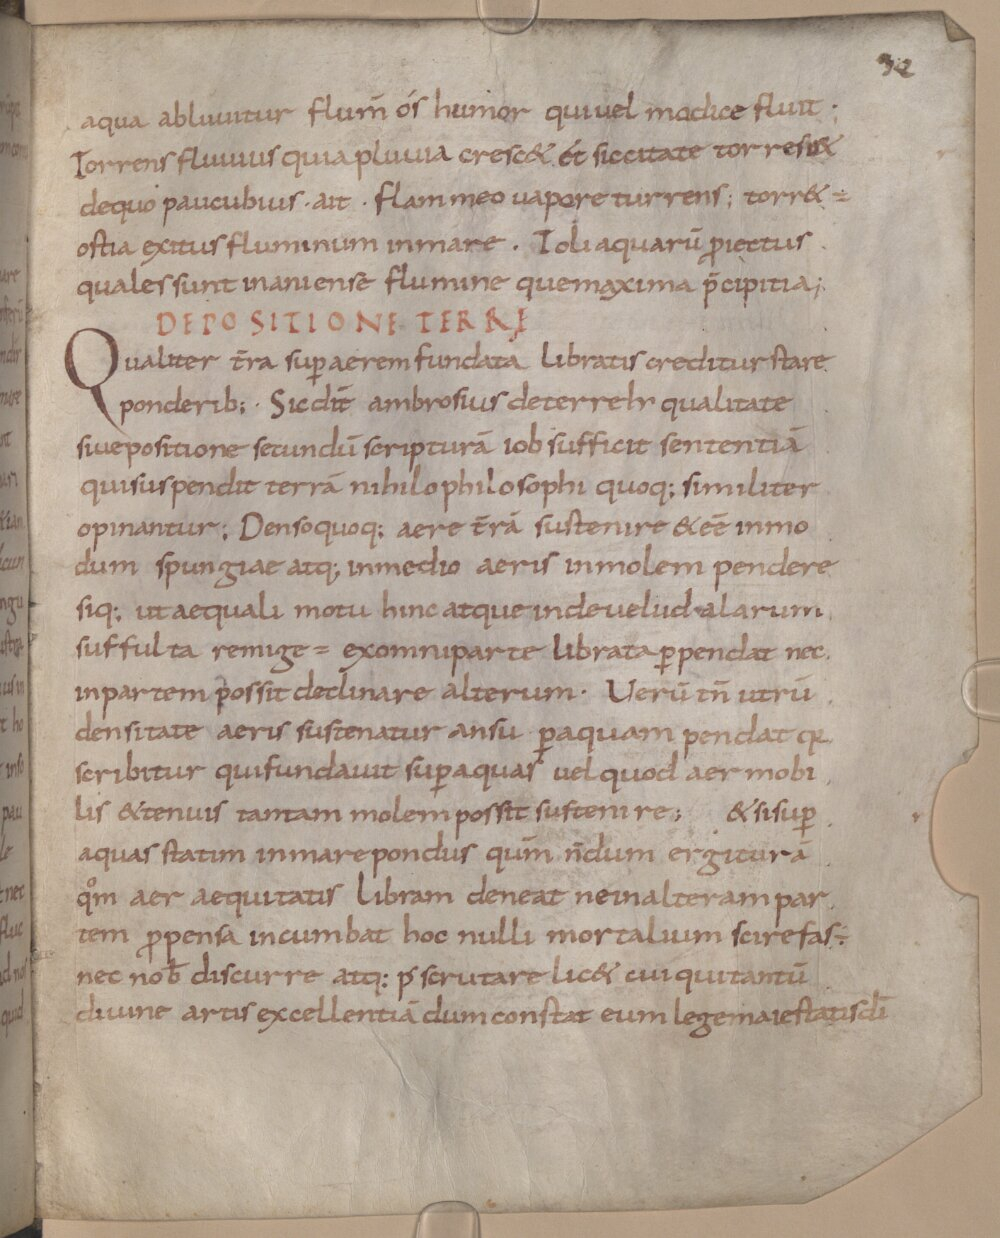 32
aqua abluuitur flum̄ ós humor qui uel modice fluit ;
Torrens fluuius quia pluuia cresc& ét siccitate torresc&
dequo paucubius · ait · flammeo uapore turrens ; torr&
ostia exitus fluminum inmare . Toli aquarū piectus
quales sunt inaniensē flumine quemaxima p̄cipitia ;
DEPOSITIONE TERRĘ
Qualiter t̄ra sup aerem fundata libratis creditur stare
ponderib; · Sicdīt ambrosius deterrehr qualitate
siuepositione secundū scripturā iob sufficit sententiā
quisuspendit terrā nihilo philosophi quoq; similiter
opinantur ; Densoquoq; aere t̄rā sustenire &eē inmo
dum spungiae atq; inmedio aeris inmolem pendere
siq; ut aequali motu hinc atque inde uelud alarum
suffulta remige = exomniparte librata ppendat nec
inpartem possit declinare alterum · Uerū tn̄ utrū
densitate aeris sustenatur ansu paquam pendat qr
scribitur quifundauit sup aquas uel quod aer mobi
lis &tenuis tantam molem possit sustenire ; &si sup
aquas statim inmare pondus qūm n̄dum ergiturā
qm̊ aer aequitatis libram deneat neinalteram par
tem ppensa incumbat hoc nulli mortalium scire fas ÷
nec nob̄ discurre atq; p̄scrutare lic& cui quitantū
diuine artis excellentiā dum constat eum legemaiestatis dī